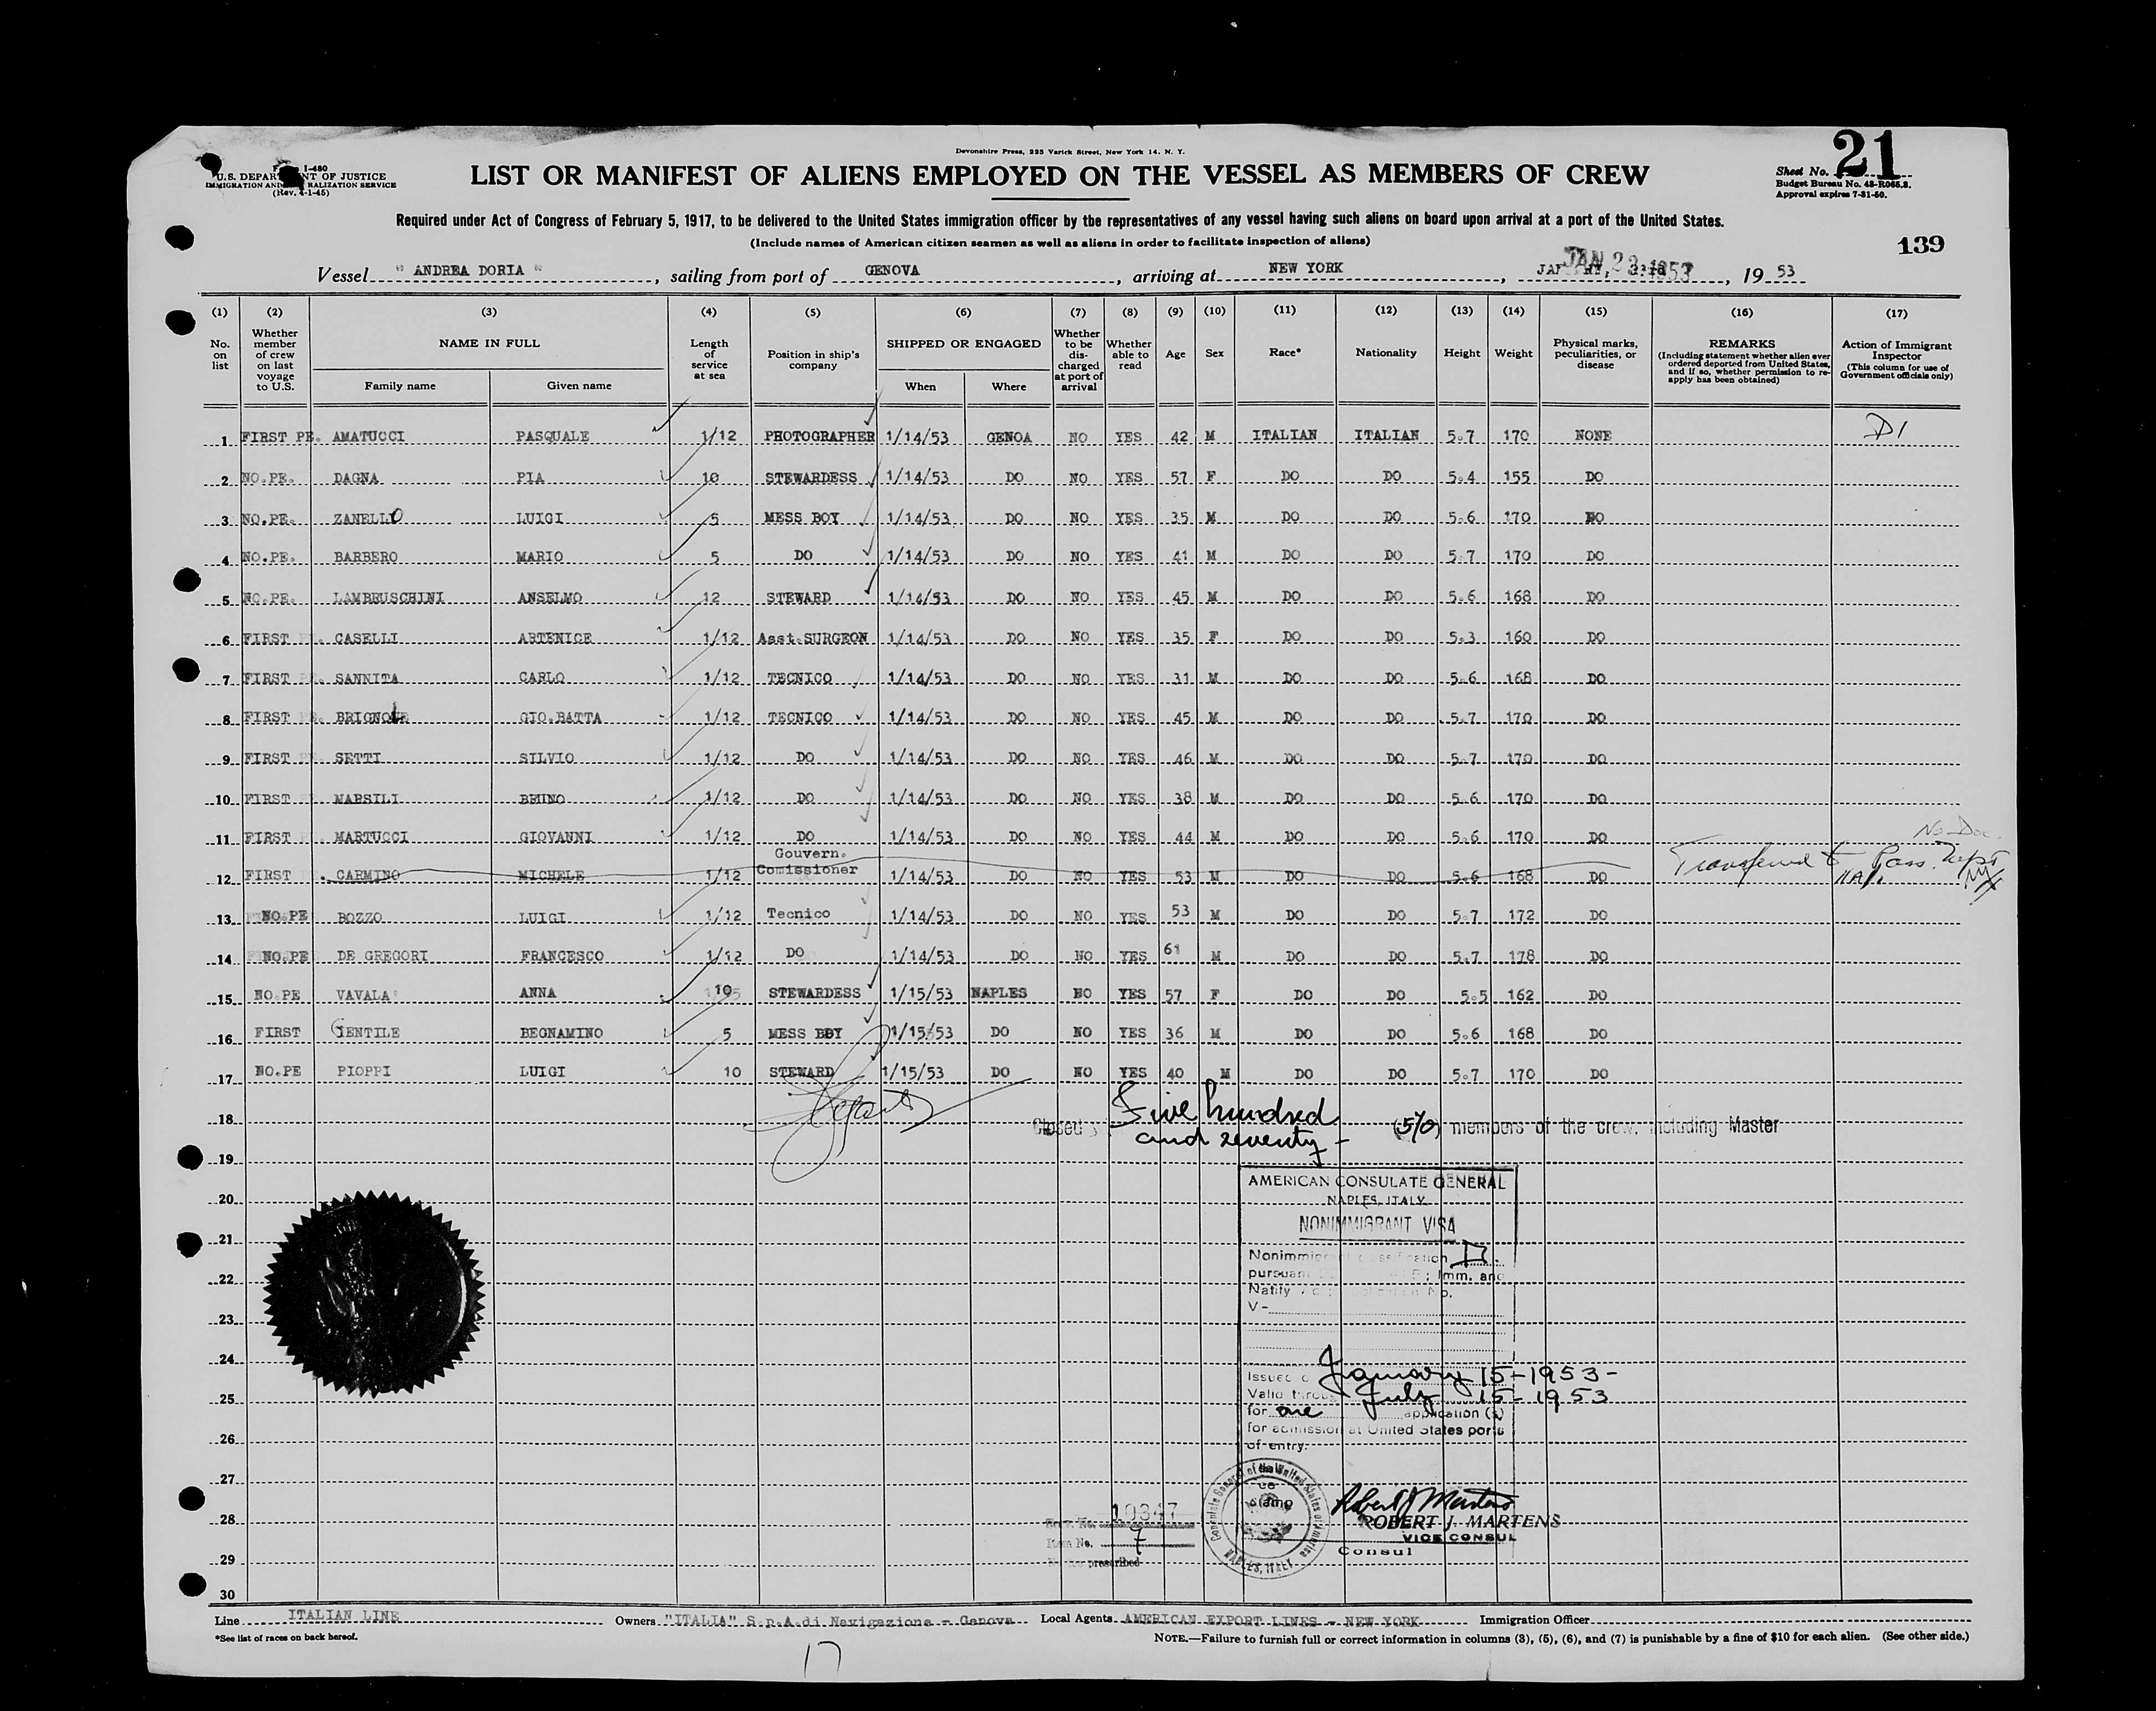 Devonshire Press, 225 Varick Street, New York 14, N. Y.
I-480
U.S. DEPARTMENT OF JUSTICE
IMMIGRATION AND NATURALIZATION SERVICE
(Rev. 4-1-45)
LIST OR MANIFEST OF ALIENS EMPLOYED ON THE VESSEL AS MEMBERS OF CREW
Sheet No. 21
Budget Bureau No. 43-R065.3.
Approval expires 7-31-50.
Required under Act of Congress of February 5, 1917, to be delivered to the United States immigration officer by the representatives of any vessel having such aliens on board upon arrival at a port of the United States.
(Include names of American citizen seamen as well as aliens in order to facilitate inspection of aliens)
139
Vessel " ANDREA DORIA ", sailing from port of GENOVA, arriving at NEW YORK, JAN 23 1953, 19 53
(1) (2) (3) (4) (5) (6) (7) (8) (9) (10) (11) (12) (13) (14) (15) (16) (17)
No. on list
Whether member of crew on last voyage to U.S.
NAME IN FULL
Family name
Given name
Length of service at sea
Position in ship's company
SHIPPED OR ENGAGED
When
Where
Whether to be discharged at port of arrival
Whether able to read
Age
Sex
Race*
Nationality
Height
Weight
Physical marks, peculiarities, or disease
REMARKS
(Including statement whether alien ever ordered deported from United States, and if so, whether permission to reapply has been obtained)
Action of Immigrant Inspector
(This column for use of Government officials only)
1 FIRST PE. AMATUCCI PASQUALE 1/12 PHOTOGRAPHER 1/14/53 GENOA NO YES 42 M ITALIAN ITALIAN 5.7 170 NONE D1
2 NO.PE. DAGNA PIA 10 STEWARDESS 1/14/53 DO NO YES 57 F DO DO 5.4 155 DO
3 NO.PE. ZANELLO LUIGI 5 MESS BOY 1/14/53 DO NO YES 35 M DO DO 5.6 170 DO
4 NO.PE. BARBERO MARIO 5 DO 1/14/53 DO NO YES 41 M DO DO 5.7 170 DO
5 NO.PE. LAMBRUSCHINI ANSELMO 12 STEWARD 1/14/53 DO NO YES 45 M DO DO 5.6 168 DO
6 FIRST PE. CASELLI ARTENICE 1/12 Asst.SURGEON 1/14/53 DO NO YES 35 F DO DO 5.3 160 DO
7 FIRST PE. SANNITA CARLO 1/12 TECNICO 1/14/53 DO NO YES 31 M DO DO 5.6 168 DO
8 FIRST PE. BRIGNOLE GIO.BATTA 1/12 TECNICO 1/14/53 DO NO YES 45 M DO DO 5.7 170 DO
9 FIRST PE. SETTI SILVIO 1/12 DO 1/14/53 DO NO YES 46 M DO DO 5.7 170 DO
10 FIRST PE. MARSILI BRUNO 1/12 DO 1/14/53 DO NO YES 38 M DO DO 5.6 170 DO
11 FIRST PE. MARTUCCI GIOVANNI 1/12 DO 1/14/53 DO NO YES 44 M DO DO 5.6 170 DO No Doc.
Gouvern.
12 FIRST . CARMINO MICHELE 1/12 Comissioner 1/14/53 DO NO YES 53 M DO DO 5.6 168 DO Transferred to Pass. Dept
13 NO.PE BOZZO LUIGI 1/12 Tecnico 1/14/53 DO NO YES 53 M DO DO 5.7 172 DO
14 NO.PE DE GREGORI FRANCESCO 1/12 DO 1/14/53 DO NO YES 61 M DO DO 5.7 178 DO
15 NO.PE VAVALA' ANNA 10 STEWARDESS 1/15/53 NAPLES NO YES 57 F DO DO 5.5 162 DO
16 FIRST GENTILE BEGNAMINO 5 MESS BOY 1/15/53 DO NO YES 36 M DO DO 5.6 168 DO
17 NO.PE PIOPPI LUIGI 10 STEWARD 1/15/53 DO NO YES 40 M DO DO 5.7 170 DO
18 Closed Five hundred and seventy - (570) members of the crew, including Master
19
20
21
22
23
24
25
26
27
28
29
30
AMERICAN CONSULATE GENERAL
NAPLES, ITALY
NONIMMIGRANT VISA
Nonimmigrant classification D
pursuant Imm. and
Natity No.
V-
Issued January 15-1953-
Valid through July 15-1953
for one application (s)
for admission at United States ports
of entry.
Consulate General of the United States of America
NAPLES, ITALY
Robert J Martens
ROBERT J. MARTENS
VICE CONSUL
Consul
10347
Item No. 7
prescribed
Line ITALIAN LINE Owners "ITALIA" S.p.A.di Navigazione - Genova Local Agents AMERICAN EXPORT LINES - NEW YORK Immigration Officer
*See list of races on back hereof.
NOTE.—Failure to furnish full or correct information in columns (3), (5), (6), and (7) is punishable by a fine of $10 for each alien. (See other side.)
17